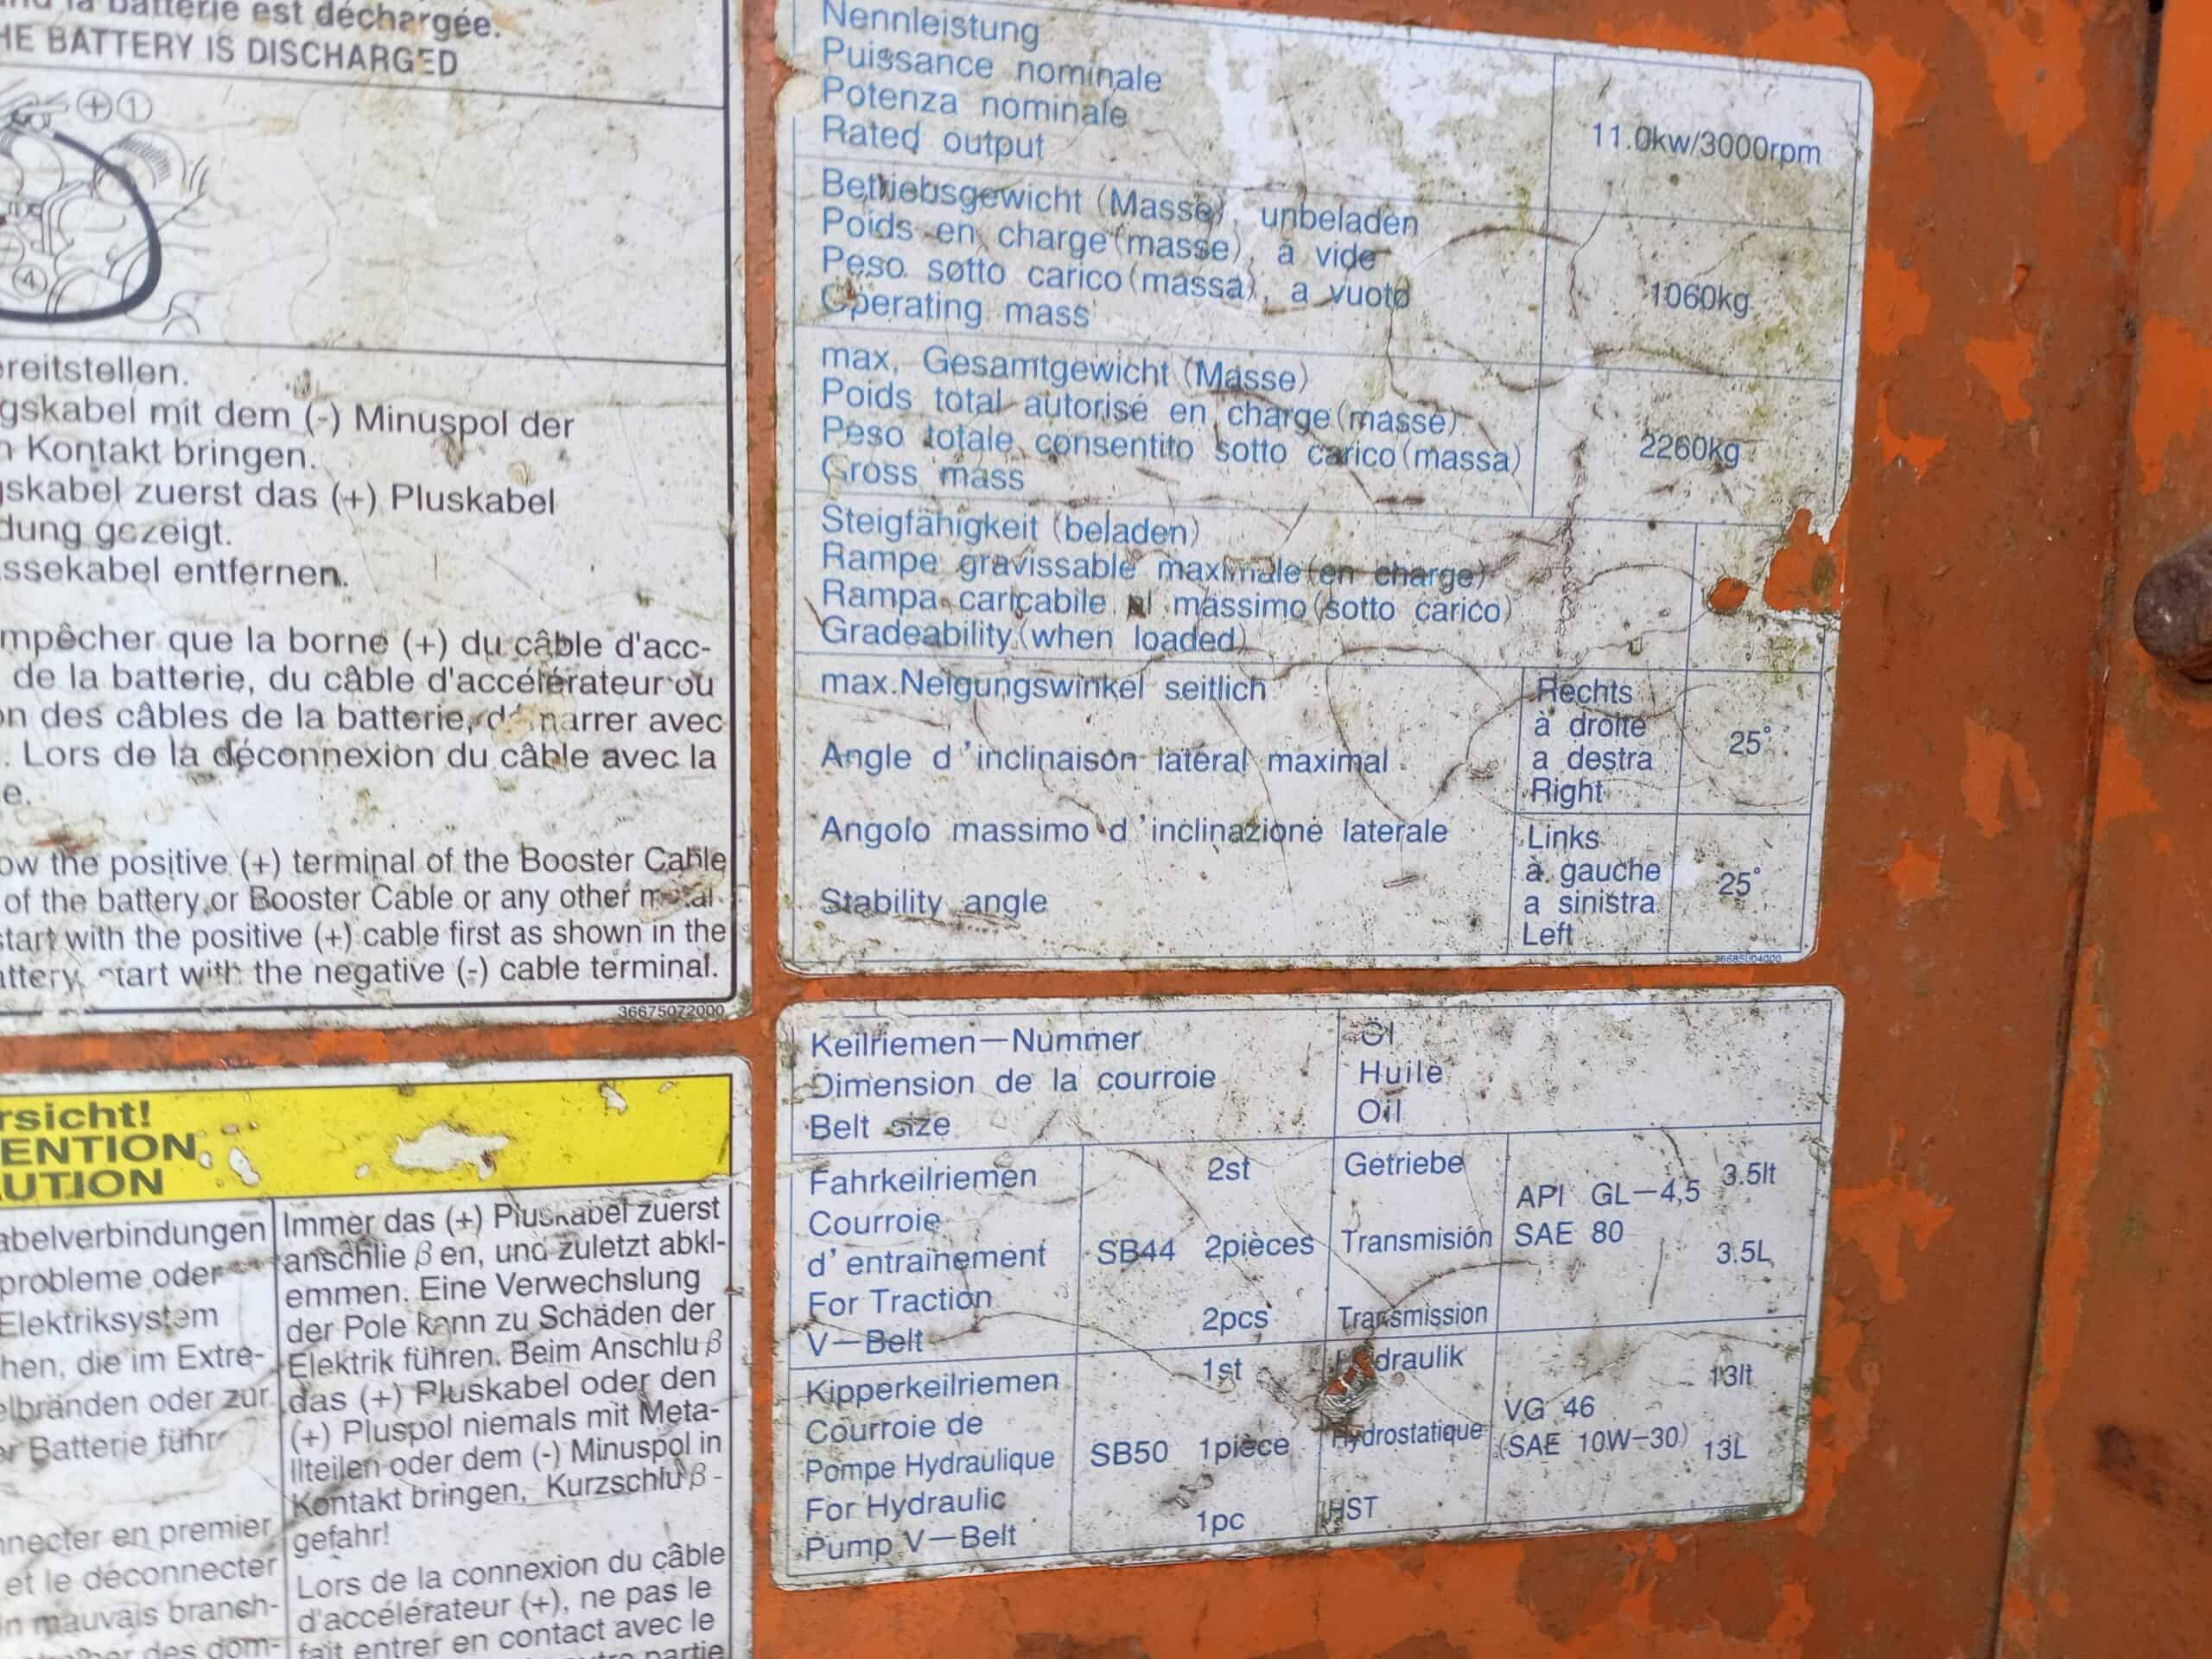 la batterie est déchargée.
HE BATTERY IS DISCHARGED
+ 1
4
reitstellen.
gskabel mit dem (-) Minuspol der
Kontakt bringen.
skabel zuerst das (+) Pluskabel
dung gezeigt.
ssekabel entfernen.
mpêcher que la borne (+) du câble d'acc-
de la batterie, du câble d'accélérateur ou
on des câbles de la batterie, démarrer avec
. Lors de la déconnexion du câble avec la
e.
ow the positive (+) terminal of the Booster Cable
of the battery or Booster Cable or any other metal
start with the positive (+) cable first as shown in the
attery, start with the negative (-) cable terminal.
36675072000
rsicht!
ENTION
UTION
abelverbindungen
probleme oder
Elektriksystem
hen, die im Extre-
elbränden oder zur
er Batterie führ
nnecter en premier
et le déconnecter
in mauvais branch-
des dom-
Immer das (+) Pluskabel zuerst
anschlie β en, und zuletzt abkl-
emmen. Eine Verwechslung
der Pole kann zu Schäden der
Elektrik führen. Beim Anschlu β
das (+) Pluskabel oder den
(+) Pluspol niemals mit Meta-
llteilen oder dem (-) Minuspol in
Kontakt bringen, Kurzschlu β -
gefahr!
Lors de la connexion du câble
d'accélérateur (+), ne pas le
fait entrer en contact avec le
partie
Nennleistung
Puissance nominale
Potenza nominale
Rated output
11.0kw/3000rpm
Betriebsgewicht (Masse), unbeladen
Poids en charge (masse), à vide
Peso sotto carico (massa), a vuoto
Operating mass
1060kg
max. Gesamtgewicht (Masse)
Poids total autorisé en charge (masse)
Peso totale consentito sotto carico (massa)
Gross mass
2260kg
Steigfähigkeit (beladen)
Rampe gravissable maximale (en charge)
Rampa caricabile al massimo (sotto carico)
Gradeability (when loaded)
max. Neigungswinkel seitlich
Angle d'inclinaison latéral maximal
Angolo massimo d'inclinazione laterale
Stability angle
Rechts
à droite
a destra
Right
25°
Links
à gauche
a sinistra
Left
25°
36685004000
Keilriemen—Nummer
Dimension de la courroie
Belt size
Öl
Huile
Oil
Fahrkeilriemen
Courroie
d'entraînement
For Traction
V—Belt
2st
SB44 2pièces
2pcs
Getriebe
Transmisión
Transmission
API GL—4,5
SAE 80
3.5lt
3.5L
Kipperkeilriemen
Courroie de
Pompe Hydraulique
For Hydraulic
Pump V—Belt
1st
SB50 1pièce
1pc
draulik
Hydrostatique
HST
VG 46
(SAE 10W—30)
13lt
13L